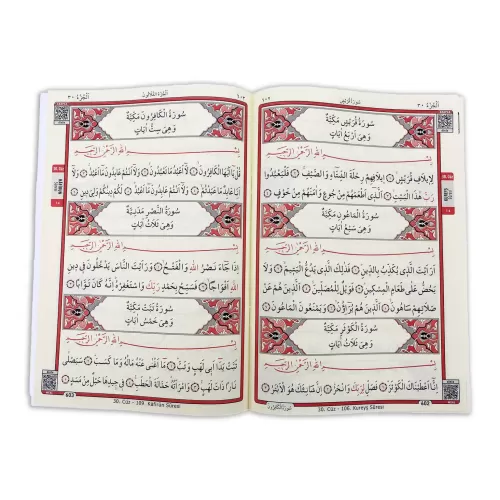 اَلْجُزْءُ ٣٠
سُورَةُ قُرَيْشٍ
سُورَةُ قُرَيْشٍ مَكِّيَّةٌ
وَهِيَ اَرْبَعُ اٰيَاتٍ
بِسْمِ اللّٰهِ الرَّحْمٰنِ الرَّحِيمِ
لِاِيلَافِ قُرَيْشٍ ۝ اِيلَافِهِمْ رِحْلَةَ الشِّتَٓاءِ وَالصَّيْفِ ۝ فَلْيَعْبُدُوا
رَبَّ هٰذَا الْبَيْتِ ۝ اَلَّذِٓي اَطْعَمَهُمْ مِنْ جُوعٍ وَاٰمَنَهُمْ مِنْ خَوْفٍ ۝
سُورَةُ الْمَاعُونِ مَكِّيَّةٌ
وَهِيَ سَبْعُ اٰيَاتٍ
بِسْمِ اللّٰهِ الرَّحْمٰنِ الرَّحِيمِ
اَرَاَيْتَ الَّذِي يُكَذِّبُ بِالدِّينِ ۝ فَذٰلِكَ الَّذِي يَدُعُّ الْيَتِيمَ ۝ وَلَا
يَحُضُّ عَلٰى طَعَامِ الْمِسْكِينِ ۝ فَوَيْلٌ لِلْمُصَلِّينَ ۝ اَلَّذِينَ هُمْ عَنْ
صَلَاتِهِمْ سَاهُونَ ۝ اَلَّذِينَ هُمْ يُرَٓاؤُ۫نَ ۝ وَيَمْنَعُونَ الْمَاعُونَ ۝
سُورَةُ الْكَوْثَرِ مَكِّيَّةٌ
وَهِيَ ثَلَاثُ اٰيَاتٍ
بِسْمِ اللّٰهِ الرَّحْمٰنِ الرَّحِيمِ
اِنَّٓا اَعْطَيْنَاكَ الْكَوْثَرَ ۝ فَصَلِّ لِرَبِّكَ وَانْحَرْ ۝ اِنَّ شَانِئَكَ هُوَ الْاَبْتَرُ ۝
602
30. Cüz - 106. Kureyş Sûresi
اَلْجُزْءُ ٣٠
اَلْجُزْءُ الثَّلَاثُونَ
سُورَةُ الْكَافِرُونَ مَكِّيَّةٌ
وَهِيَ سِتُّ اٰيَاتٍ
بِسْمِ اللّٰهِ الرَّحْمٰنِ الرَّحِيمِ
قُلْ يَٓا اَيُّهَا الْكَافِرُونَ ۝ لَٓا اَعْبُدُ مَا تَعْبُدُونَ ۝ وَلَٓا اَنْتُمْ عَابِدُونَ مَٓا اَعْبُدُ ۝ وَلَٓا
اَنَا۬ عَابِدٌ مَا عَبَدْتُمْ ۝ وَلَٓا اَنْتُمْ عَابِدُونَ مَٓا اَعْبُدُ ۝ لَكُمْ دِينُكُمْ وَلِيَ دِينِ ۝
سُورَةُ النَّصْرِ مَدَنِيَّةٌ
وَهِيَ ثَلَاثُ اٰيَاتٍ
بِسْمِ اللّٰهِ الرَّحْمٰنِ الرَّحِيمِ
اِذَا جَٓاءَ نَصْرُ اللّٰهِ وَالْفَتْحُ ۝ وَرَاَيْتَ النَّاسَ يَدْخُلُونَ فِي دِينِ
اللّٰهِ اَفْوَاجًا ۝ فَسَبِّحْ بِحَمْدِ رَبِّكَ وَاسْتَغْفِرْهُ اِنَّهُ كَانَ تَوَّابًا ۝
سُورَةُ تَبَّتْ مَكِّيَّةٌ
وَهِيَ خَمْسُ اٰيَاتٍ
بِسْمِ اللّٰهِ الرَّحْمٰنِ الرَّحِيمِ
تَبَّتْ يَدَٓا اَبِي لَهَبٍ وَتَبَّ ۝ مَٓا اَغْنٰى عَنْهُ مَالُهُ وَمَا كَسَبَ ۝ سَيَصْلٰى
نَارًا ذَاتَ لَهَبٍ ۝ وَامْرَاَتُهُ حَمَّالَةَ الْحَطَبِ ۝ فِي جِيدِهَا حَبْلٌ مِنْ مَسَدٍ ۝
603
30. Cüz - 109. Kâfirûn Sûresi